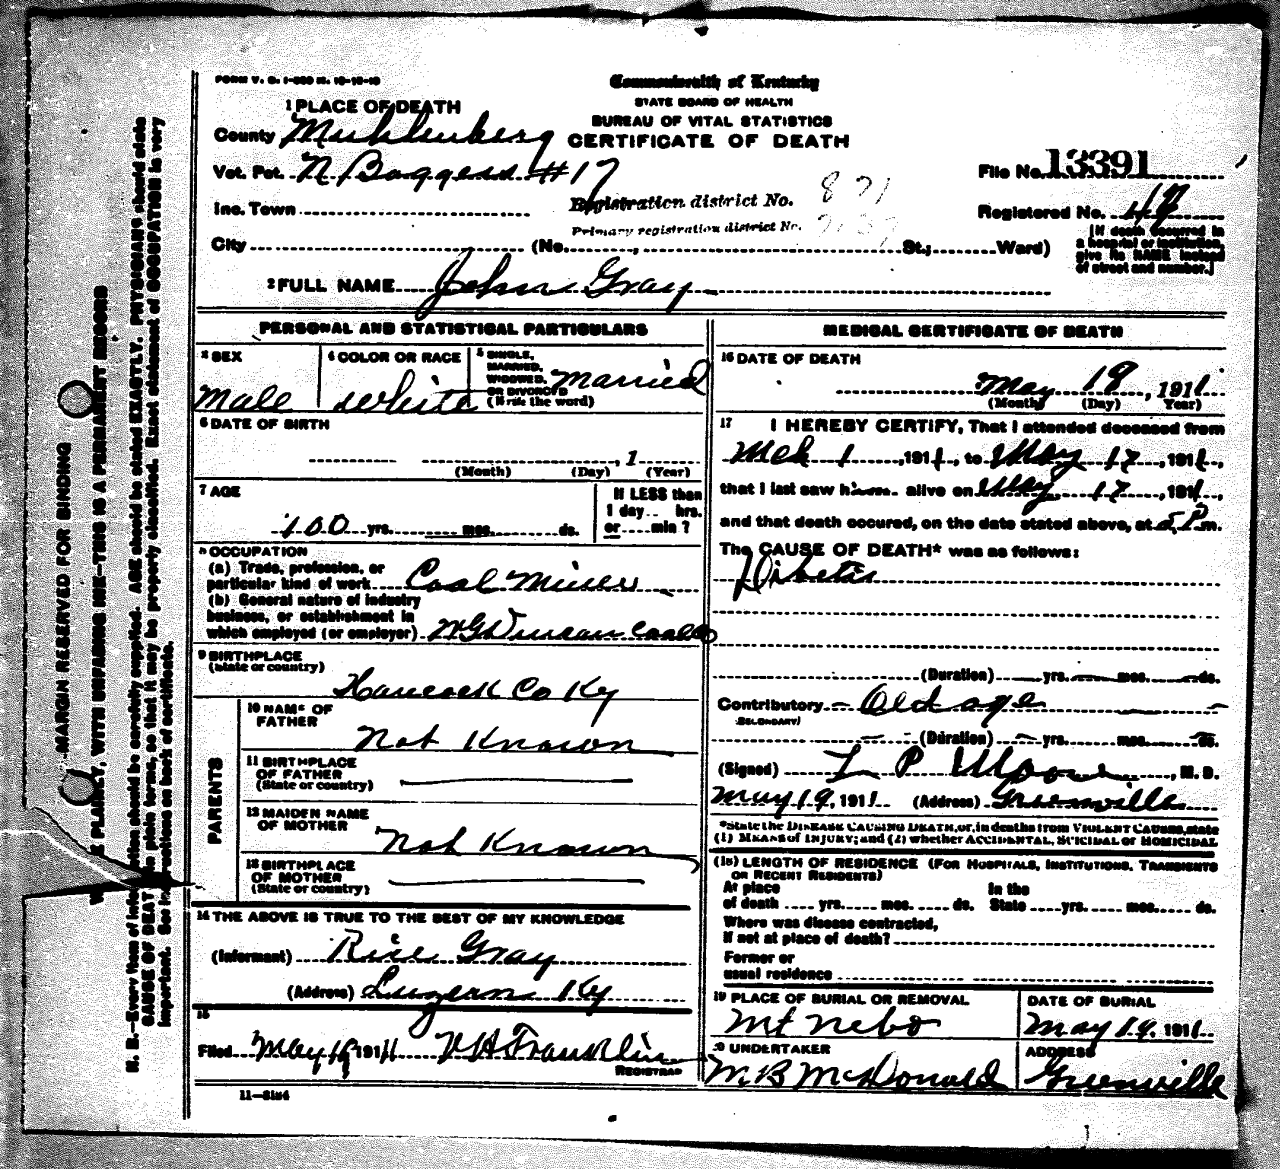 Commonwealth of Kentucky
STATE BOARD OF HEALTH
BUREAU OF VITAL STATISTICS
CERTIFICATE OF DEATH
1 PLACE OF DEATH
County Muhlenberg
Vot. Pct. N Boggess #17
Inc. Town
City (No. , St.; Ward)
Registration district No. 871
Primary registration district No.
File No. 13391
Registered No.
[If death occurred in
a hospital or institution,
give its NAME instead
of street and number.]
2 FULL NAME John Gray
PERSONAL AND STATISTICAL PARTICULARS
3 SEX
Male
4 COLOR OR RACE
white
5 SINGLE,
MARRIED,
WIDOWED,
OR DIVORCED
(Write the word)
Married
6 DATE OF BIRTH
, 1
(Month) (Day) (Year)
7 AGE
100 yrs. mos. ds.
If LESS than
1 day hrs.
or min ?
8 OCCUPATION
(a) Trade, profession, or
particular kind of work Coal Miner
(b) General nature of industry
business, or establishment in
which employed (or employer) WG Duncan Coal Co
9 BIRTHPLACE
(State or country)
Hancock Co Ky
PARENTS
10 NAME OF
FATHER
Not Known
11 BIRTHPLACE
OF FATHER
(State or country)
12 MAIDEN NAME
OF MOTHER
Not Known
13 BIRTHPLACE
OF MOTHER
(State or country)
14 THE ABOVE IS TRUE TO THE BEST OF MY KNOWLEDGE
(Informant) Rice Gray
(Address) Luzerne Ky
15
Filed May 19 1911 Franklin
REGISTRAR
11-3184
MEDICAL CERTIFICATE OF DEATH
16 DATE OF DEATH
May 18, 1911
(Month) (Day) Year)
17 I HEREBY CERTIFY, That I attended deceased from
Mch 1, 1911, to May 17, 1911,
that I last saw him alive on May 17, 1911,
and that death occured, on the date stated above, at 5 P m.
The CAUSE OF DEATH* was as follows:
Dibetis
(Duration) yrs. mos. ds.
Contributory Old age
(SECONDARY)
(Duration) yrs. mos. ds.
(Signed) L P Moore, M. D.
May 19, 1911 (Address) Greenville
*State the DISEASE CAUSING DEATH, or, in deaths from VIOLENT CAUSES, state
(1) MEANS of INJURY; and (2) whether ACCIDENTAL, SUICIDAL or HOMICIDAL
(18) LENGTH OF RESIDENCE (FOR HOSPITALS, INSTITUTIONS, TRANSIENTS
OR RECENT RESIDENTS)
At place
of death yrs. mos. ds.
In the
State yrs. mos. ds.
Where was disease contracted,
if not at place of death?
Former or
usual residence
19 PLACE OF BURIAL OR REMOVAL
Mt Nebo
DATE OF BURIAL
May 19, 1911
UNDERTAKER
M B McDonald
ADDRESS
Greenville
MARGIN RESERVED FOR BINDING
PLAINLY, WITH UNFADING INK-THIS IS A PERMANENT RECORD
N. B.-Every item of information should be carefully supplied. AGE should be stated EXACTLY. PHYSICIANS should state
CAUSE OF DEATH in plain terms, so that it may be properly classified. Exact statement of OCCUPATION is very
important. See instructions on back of certificate.